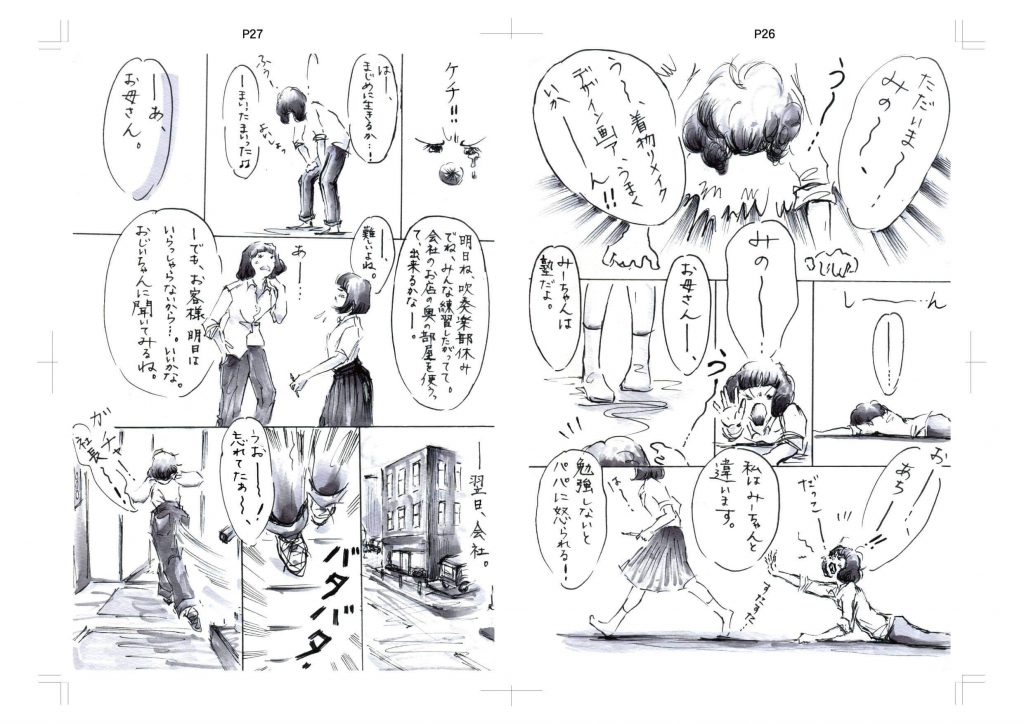 P27
P26
ただいま〜〜
みの〜〜〜
う〜…
う〜〜、着物リメイク
デザイン画て、うまく
いか———ん!!
し———ん
———…
みの———
う〜
お母さん——、
みーちゃんは
塾だよ。
お
あち———
だっこ〜
すたすた…
私はみーちゃんと
違います。
は〜
勉強しないと
パパに怒られる!
ケチ!!
は——、
まじめに生きるか…!
ふう〜
ーまいったまいったね
よいしょっ
——あ、
お母さん。
明日ね、吹奏楽部休み
でね、みんな練習したがってて。
会社のお店の奥の部屋を使って、出来るかな——。
——
難しいよね。
あ——…
ーでも、お客様明日は
いらっしゃらないから…。いいかな。
おじいちゃんに聞いてみるね。
——翌日、会社。
うお———、
忘れてたぁ〜!
バタバタ
ガチャ
社長〜〜